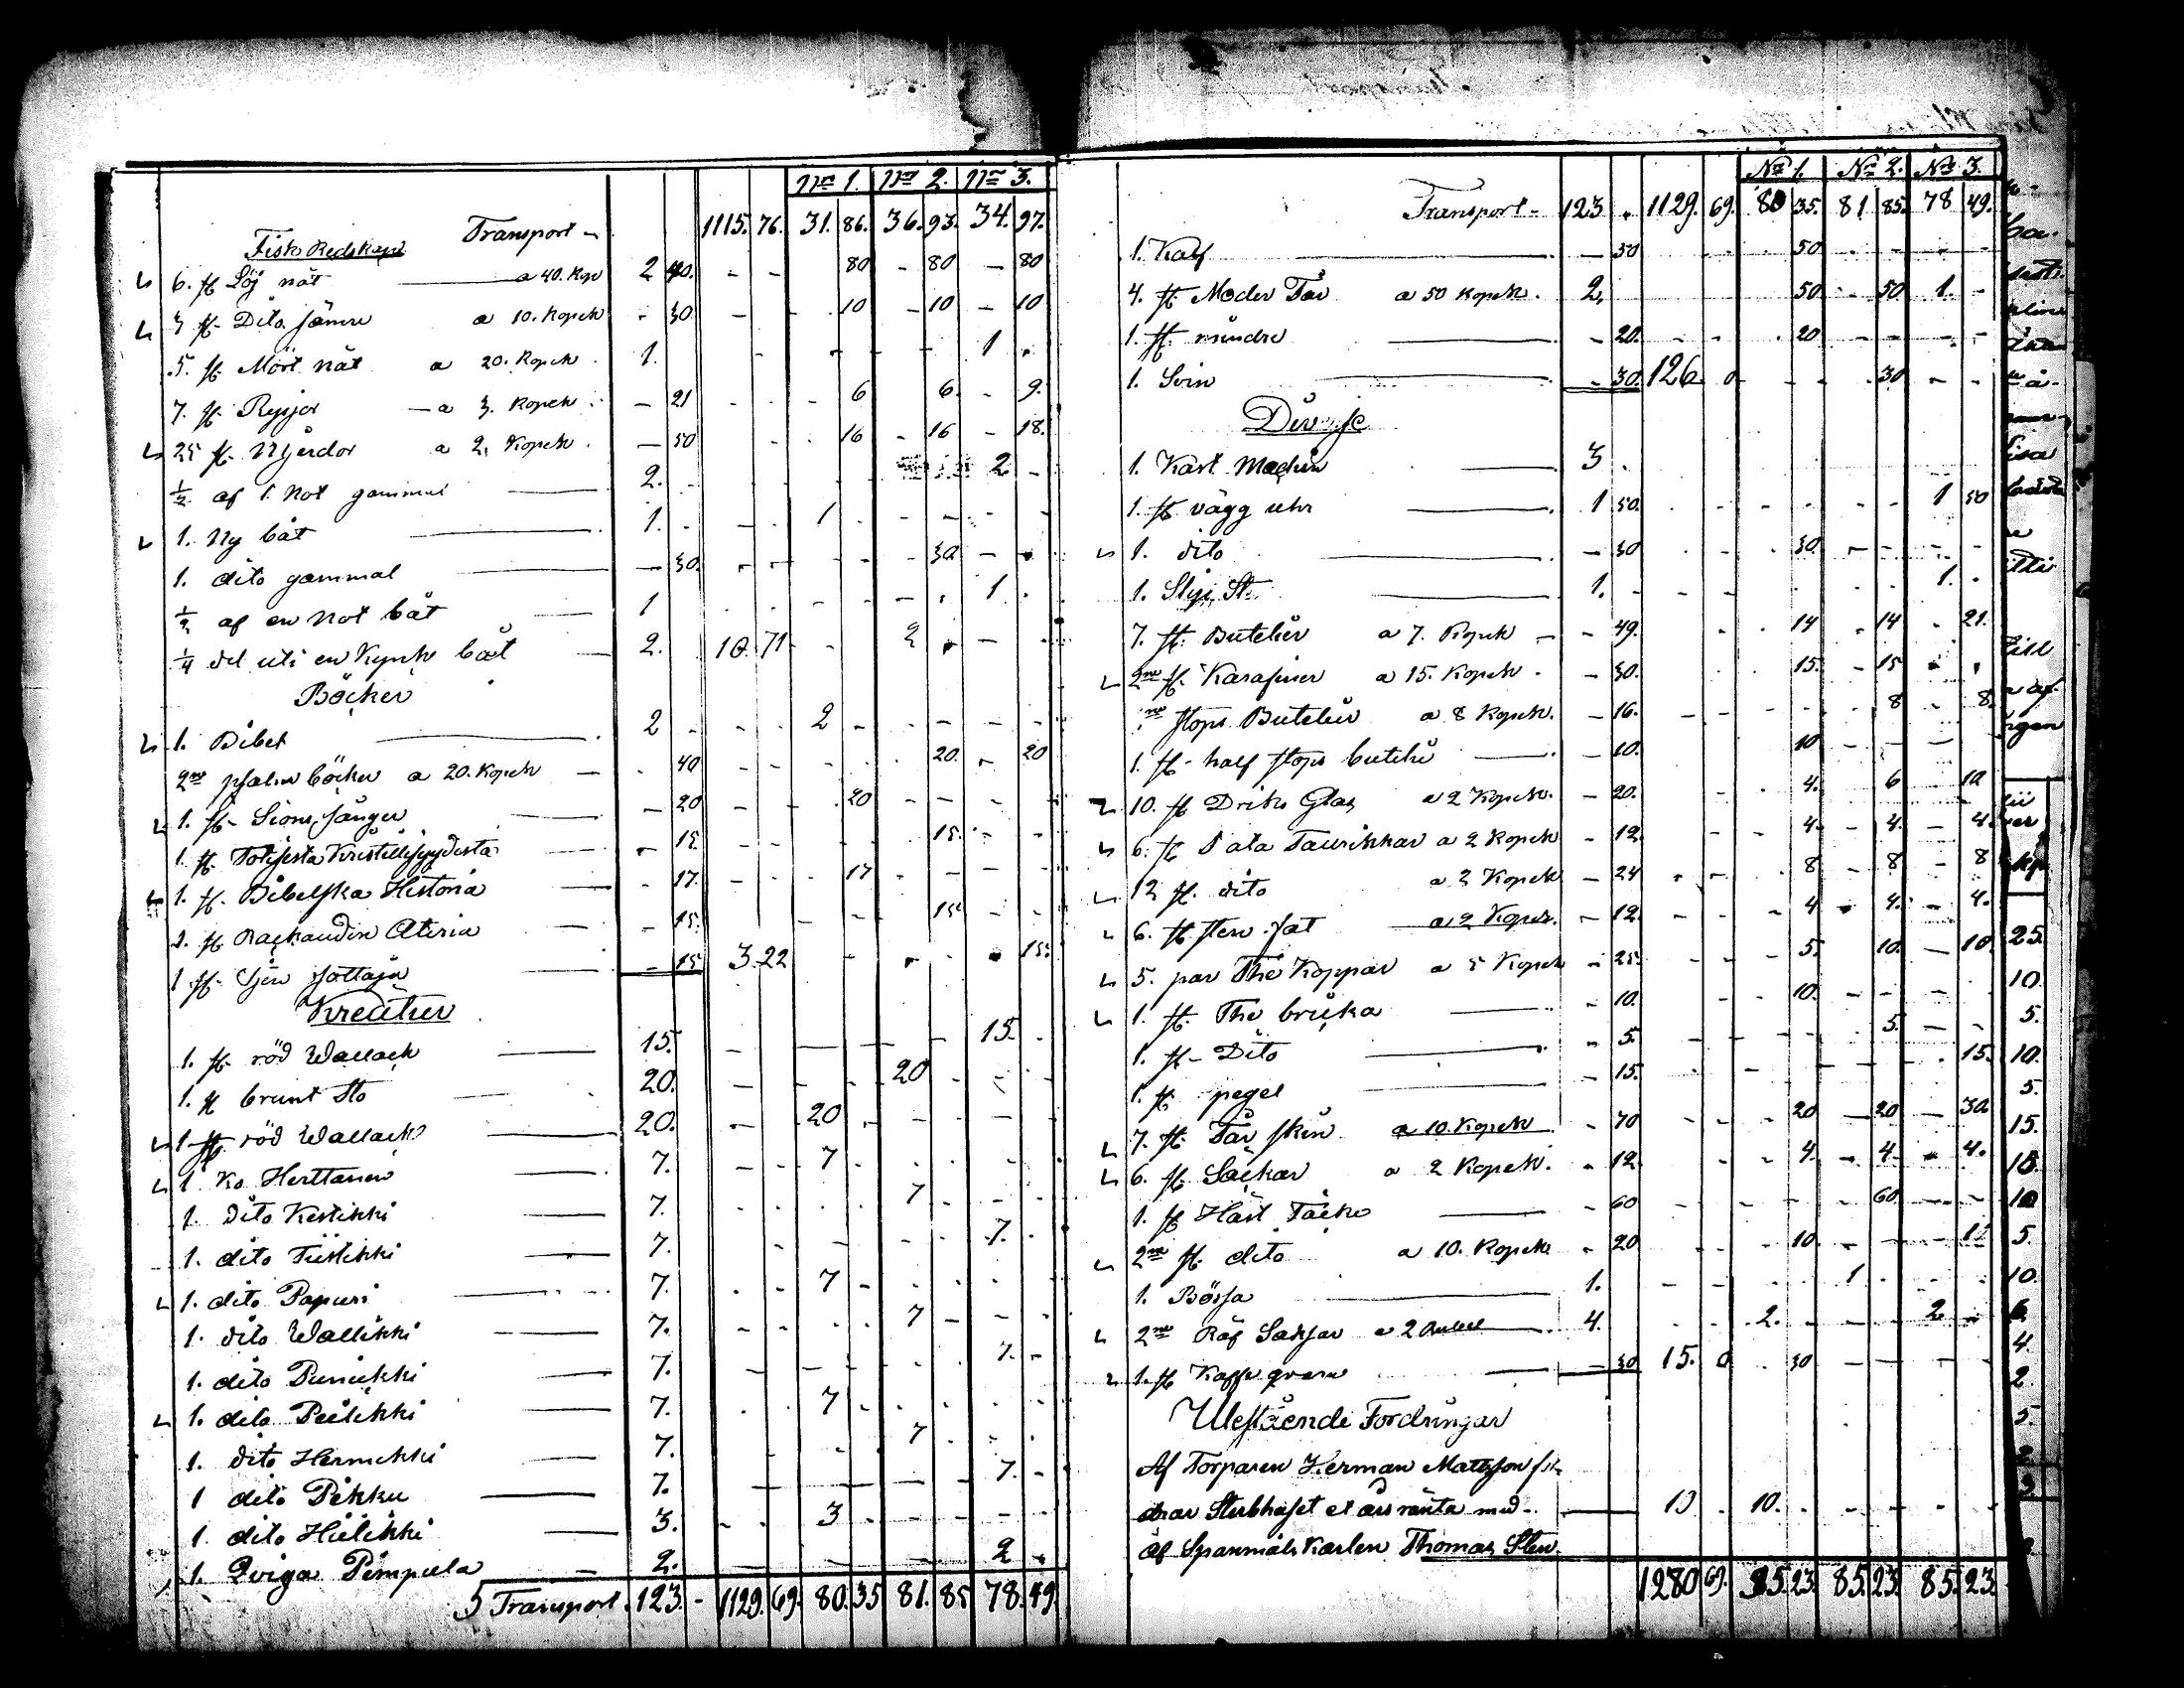 No 1. No 2. No 3.
Transport - 1115. 76. 31. 86. 36. 93. 34. 97.
Fisk Redskap
6. st Löj nät a 40. Kop 2 40. - - 80 - 80 - 80
3 st Dito sämre a 10. Kopek - 30 - - 10 - 10 - 10
5. st Mört nät a 20. Kopek 1. - - - 1 -
7. st Rysjor a 3. Kopek - 21 - - 6 6. - 9.
25 st Mjerdor a 2. Kopek - 50 - - 16 - 16 - 18.
½ af 1. Not gammal 2. 2 -
1. Ny båt 1. - - 1 - - - -
1. dito gammal - 30. - - - - 30 - -
½ af en Not båt 1 - - - - 1 .
¼ del uti en Kyrk båt 2. 10. 71 - - 2 - - -
Böcker
1. Bibel 2 - - - 2 - - - - -
2ne psalm böcker a 20. Kopek - 40 - - - - 20. - 20
1. st Sions sånger - 20 - - 20 - - - -
1. st - 15 - - - - 15. - -
1. st. Bibelska Historia - 17. - - 17 - - - -
1. st - 15. - - - 15 - -
1 st - 15 3. 22 - - - - 15.
Kreatur
1. st röd Wallack 15. - - - - 15. -
1. st brunt Sto 20. - - - 20 - - -
1 st röd Wallack 20. - 20 - - - -
1 Ko Herttanen 7. - - 7 - - - -
1. dito Kestikki 7. - - - 7 - - -
1. dito Tiistikki 7. - - - - - 7. -
1. dito Papuri 7. - - 7 - - - -
1. dito Wallikki 7. - - - 7 - - -
1. dito Punikki 7. - - - - 7. -
1. dito 7. - 7 - - - -
1. dito Hermikki 7. - - 7 - - -
1 dito Pikku 7. - - - 7. -
1. dito 3. - - 3 - - - -
1. Qviga Pimpula 2. - - - - 2 -
Transport. 123. - 1129. 69. 80. 35 81. 85 78. 49.
No 1. No 2. No 3.
Transport - 123 . 1129. 69. 80 35. 81 85. 78 49.
1. Kalf - 50 . 50 - - - -
4. st Moder Får a 50 Kopek. 2. 50 - 50 1. -
1. st mindre - 20. - - 20 - - - -
1. Svin - 30. 126. 0 - - - 30 - -
Diverse
1. Kast Maskin 3 .
1. st vägg uhr 1 50. - - - - 1 50
1. dito - 30 - - 30 - - - -
1. 1. - - - - 1. -
7. st Butelier a 7. Kopek - 49. - 14 - 14 - 21.
2ne st. Karafiner a 15. Kopek - 30. 15. - 15 - -
ne stops Butelier a 8 Kopek. - 16. - - - - 8 - 8.
1. st half stops butelie - 10. 10 - - -
10. st Driks Glas a 2 Kopek. - 20. - 4. 6 10
6. st Taurikkar a 2 Kopek - 12. - - 4 - 4. - 4.
12 st. dito a 2 Kopek - 24 - - 8 - 8 - 8
6. st sten fat a 2 Kopek. - 12. - - 4 - 4. - 4.
5. par The Koppar a 5 Kopek - 25. - - 5. 10. - 10.
1. st. The bricka - 10. - 10. - - - -
1. st Dito - 5. - - - - 5. - -
1. st pegel - 15. - - - - - 15.
7. st. Får skin a 10. Kopek - 70 - - 20 - 20 - 30
6. st. Säckar a 2 Kopek. - 12. - - 4. - 4 - 4.
1. st Häst Täcke - 60 - - - - 60 - -
2ne st. dito a 10. Kopek - 20 - - 10. - - - 10
1. Bössa 1. - - - 1 - - -
2ne Räf Saxar a 2 Rubel 4. - - 2. - - 2 -
1. st Kaffe qvarn - 30 15. 0 . 30 - - - -
Utestående Fordringar
Af Torparen Herman Mattsson
drar Sterbhuset et års ränta med - 10 . 10. - - - - -
Af Spanmåls Karlen Thomas Sten.
1280 69. 85. 23. 85. 23. 85. 23.